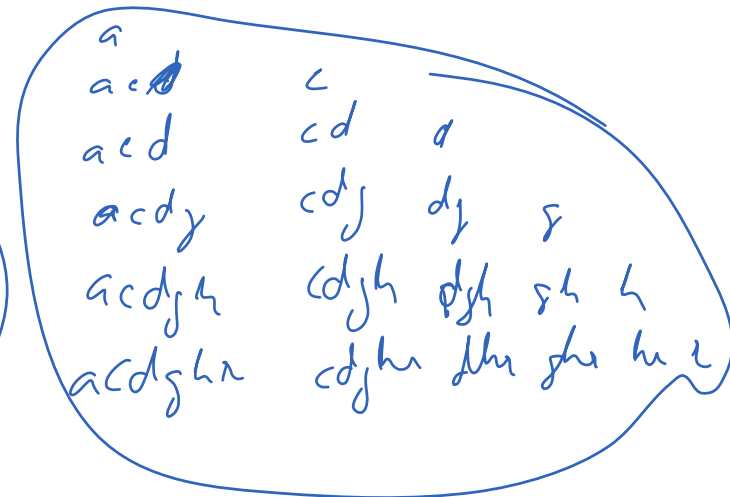 a
ac c
acd cd d
acdg cdg dg g
acdgh cdgh dgh gh h
acdghr cdghr dhr ghr hr r